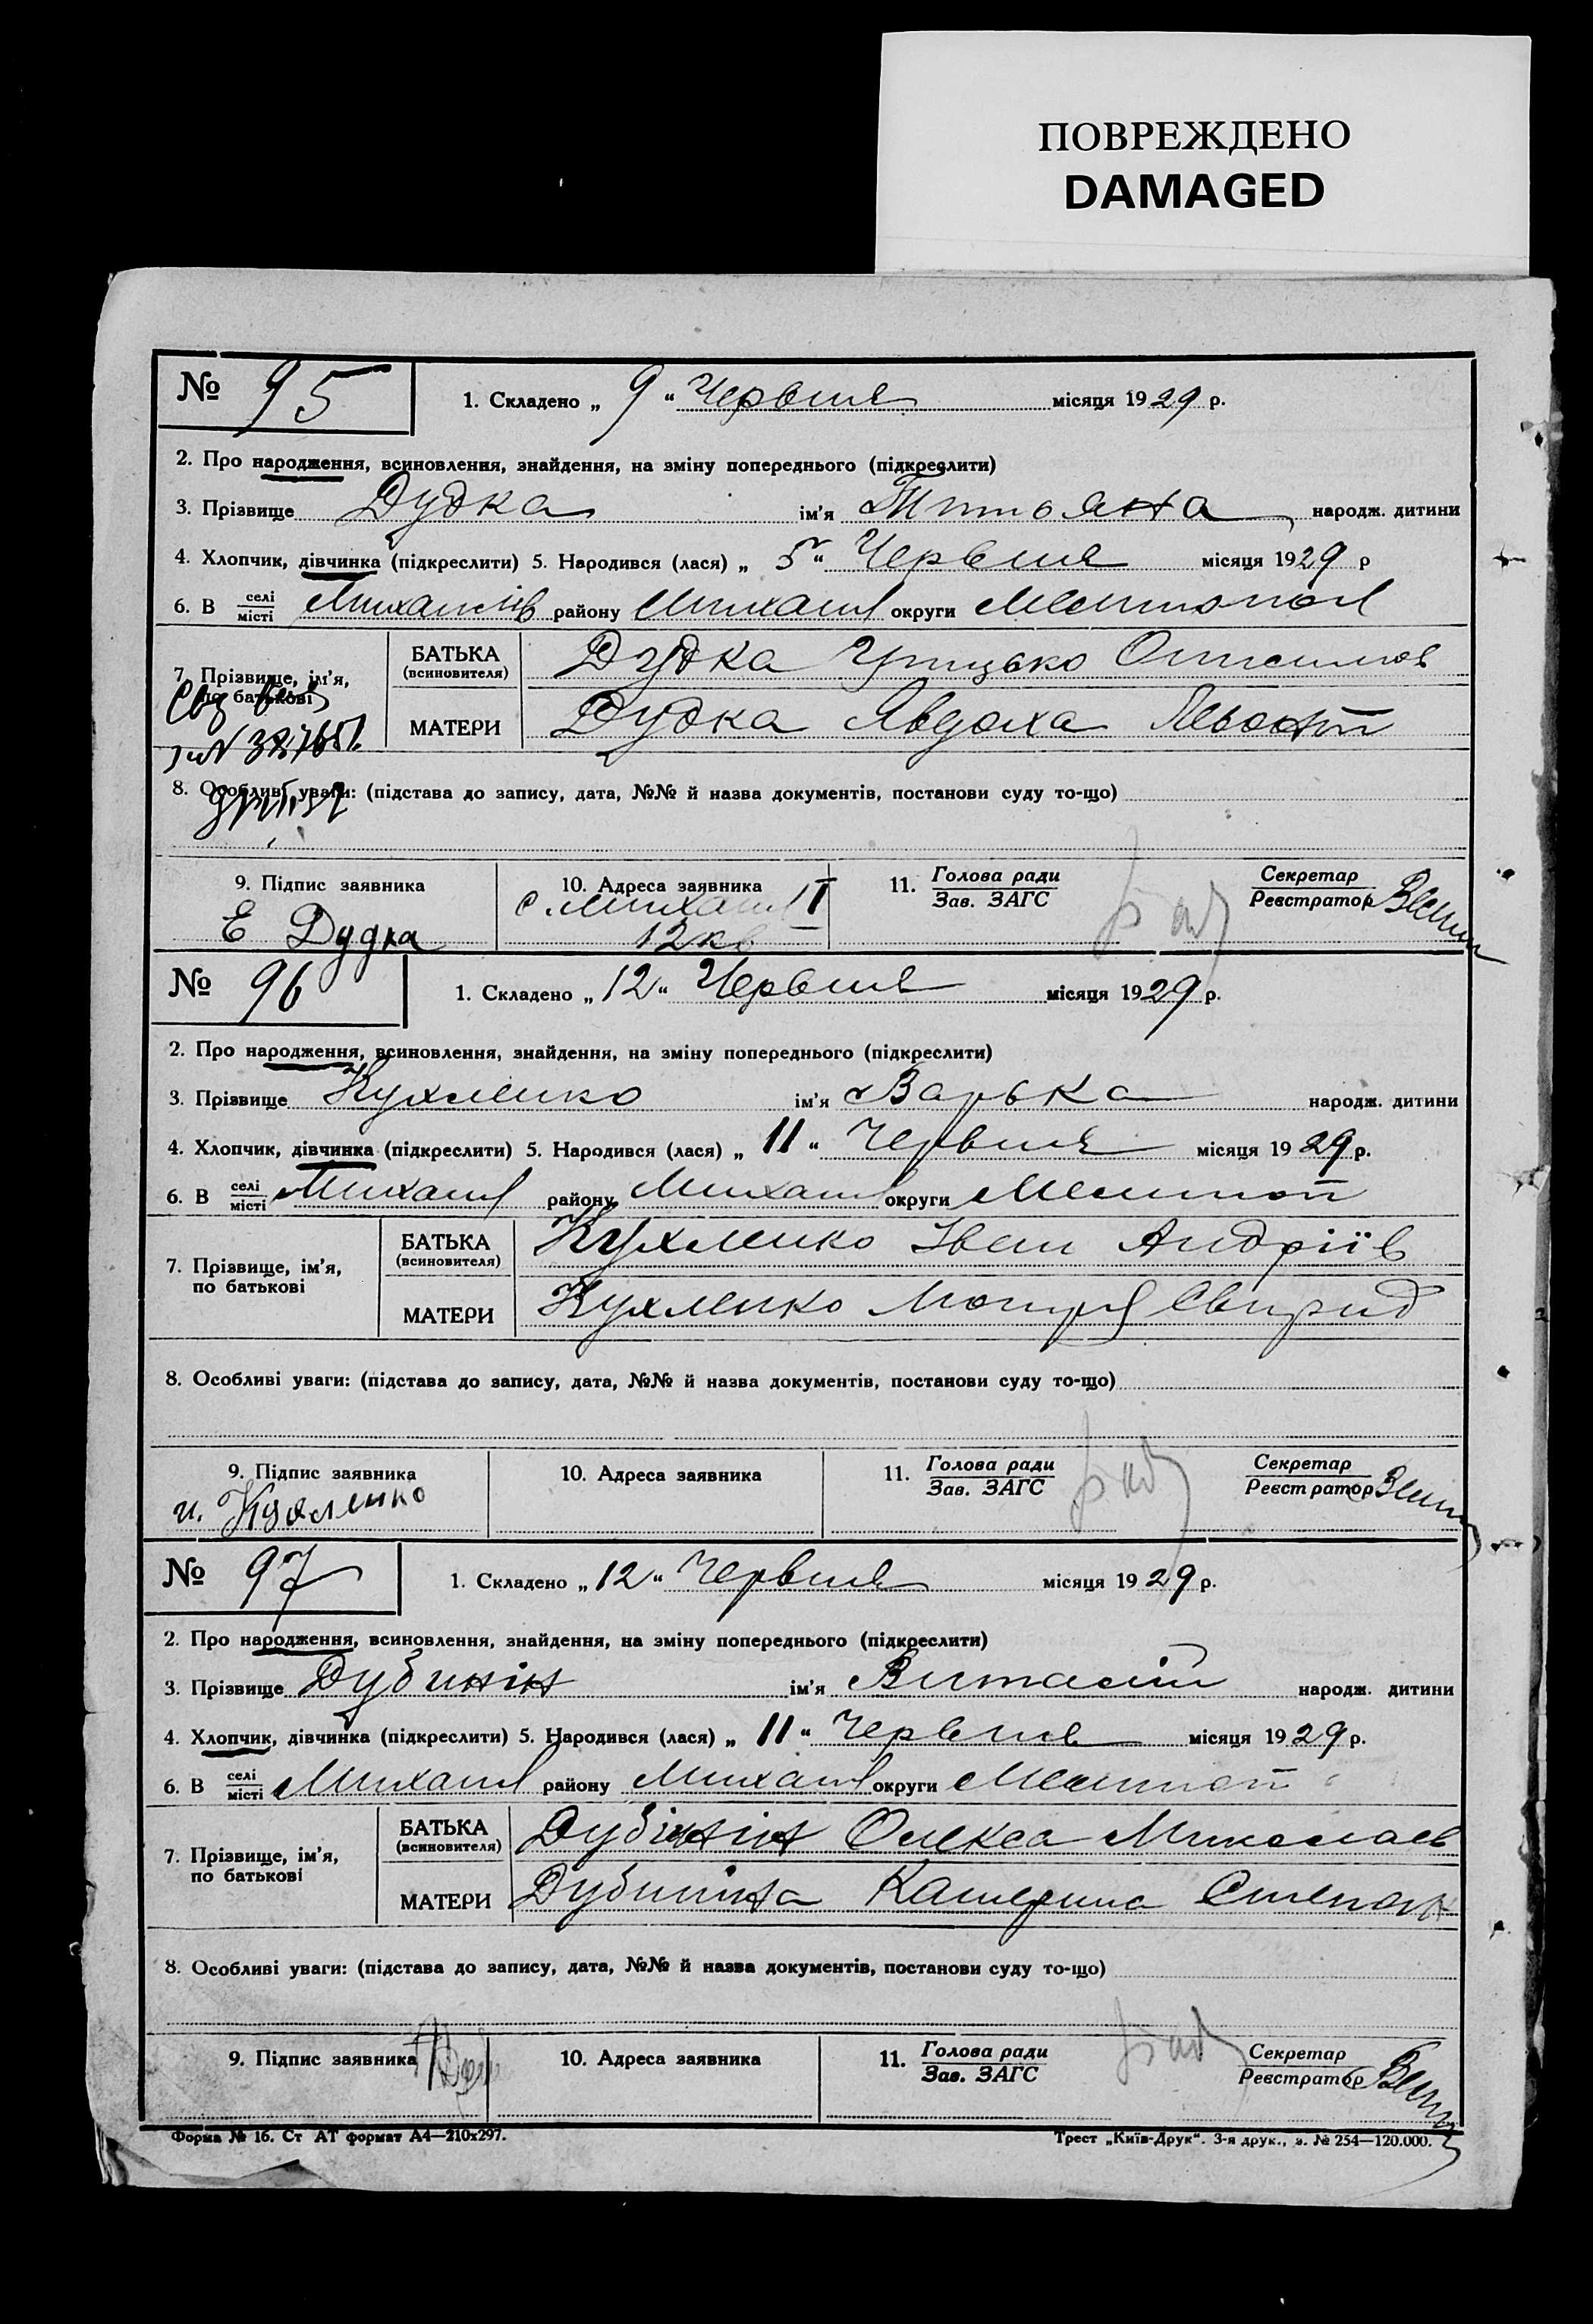 ПОВРЕЖДЕНО
DAMAGED
№ 95
1. Складено „ 9 “ Червня місяця 1929 р.
2. Про народження, всиновлення, знайдення, на зміну попереднього (підкреслити)
3. Прізвище Дудка ім'я Титояна народж. дитини
4. Хлопчик, дівчинка (підкреслити) 5. Народився (лася) „ 5 “ Червня місяця 1929 р
6. В селі місті Михайлів району Михайл округи Мелитопол
7. Прізвище, ім'я, по батькові
БАТЬКА (всиновителя) Дудка Грицько Онисимов
МАТЕРИ Дудка Явдоха
8. Особливі уваги: (підстава до запису, дата, №№ й назва документів, постанови суду то-що)
9. Підпис заявника
Е Дудка
10. Адреса заявника
с Михайл I
12 кв
11. Голова ради
Зав. ЗАГС
Секретар
Реєстратор
№ 96
1. Складено „ 12 “ Червня місяця 1929 р.
2. Про народження, всиновлення, знайдення, на зміну попереднього (підкреслити)
3. Прізвище Кухленко ім'я Варька народж. дитини
4. Хлопчик, дівчинка (підкреслити) 5. Народився (лася) „ 11 “ Червня місяця 1929 р.
6. В селі місті Михайл району Михайл округи Мелитоп
7. Прізвище, ім'я, по батькові
БАТЬКА (всиновителя) Кухленко Іван Андріїв
МАТЕРИ Кухленко Мотря Свирид
8. Особливі уваги: (підстава до запису, дата, №№ й назва документів, постанови суду то-що)
9. Підпис заявника
и. Кухленко
10. Адреса заявника
11. Голова ради
Зав. ЗАГС
Секретар
Реєстратор
№ 97
1. Складено „ 12 “ Червня місяця 1929 р.
2. Про народження, всиновлення, знайдення, на зміну попереднього (підкреслити)
3. Прізвище Дубинін ім'я Виталій народж. дитини
4. Хлопчик, дівчинка (підкреслити) 5. Народився (лася) „ 11 “ Червня місяця 1929 р.
6. В селі місті Михайл району Михайл округи Мелитоп
7. Прізвище, ім'я, по батькові
БАТЬКА (всиновителя) Дубінін Олекса Миколаєв
МАТЕРИ Дубиніна Катерина Степан
8. Особливі уваги: (підстава до запису, дата, №№ й назва документів, постанови суду то-що)
9. Підпис заявника
10. Адреса заявника
11. Голова ради
Зав. ЗАГС
Секретар
Реєстратор
Форма № 16. Ст АТ формат А4—210х297.
Трест „Київ-Друк“. 3-я друк., з. № 254—120.000.